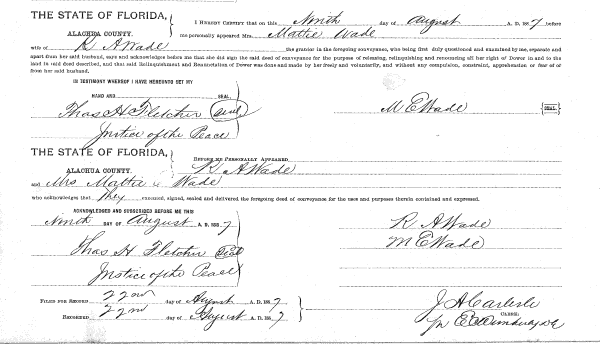 THE STATE OF FLORIDA,
ALACHUA COUNTY.
I HEREBY CERTIFY that on this Ninth day of August A. D. 1887 before
me personally appeared Mrs. Mattie Wade
wife of R A Wade the grantor in the foregoing conveyance, who being first duly questioned and examined by me, separate and
apart from her said husband, says and acknowledges before me that she did sign the said deed of conveyance for the purpose of releasing, relinquishing and renouncing all her right of Dower in and to the
land in said deed described, and that said Relinquishment and Renunciation of Dower was done and made by her freely and voluntarily, and without any compulsion, constraint, apprehension or fear of or
from her said husband.
IN TESTIMONY WHEREOF I HAVE HEREUNTO SET MY
HAND AND SEAL.
Thos H Fletcher (Seal)
M E Wade SEAL.
Justice of the Peace
THE STATE OF FLORIDA,
ALACHUA COUNTY.
BEFORE ME PERSONALLY APPEARED
R A Wade
and Mrs Mattie Wade
who acknowledges that they executed, signed, sealed and delivered the foregoing deed of conveyance for the uses and purposes therein contained and expressed.
ACKNOWLEDGED AND SUBSCRIBED BEFORE ME THIS
Ninth DAY OF August A. D. 1887
R A Wade
M E Wade
Thos H Fletcher Seal
Justice of the Peace
FILED FOR RECORD 22nd day of August A. D. 1887
RECORDED 22nd day of August A. D. 1887
J A Carlisle
CLERK.